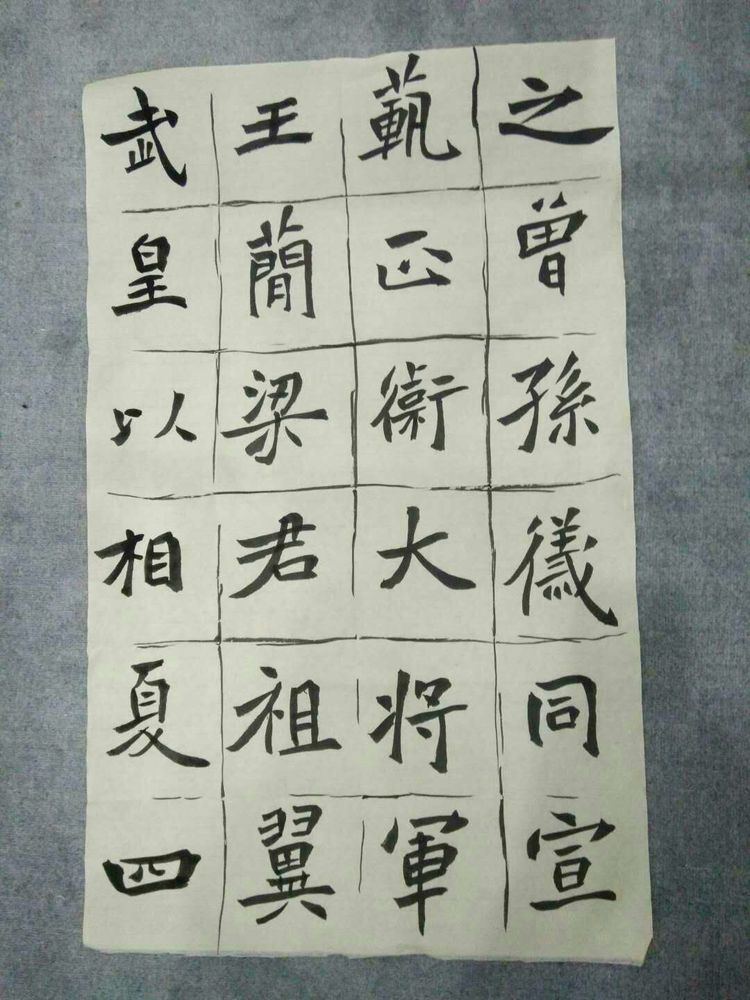 之曾孫儀同宣
範正衛大将軍
王蕳梁君祖翼
武皇以相夏四